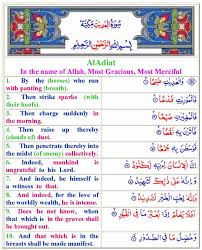 سورة العاديات مكية
بسم الله الرحمن الرحيم
AlAdiat
In the name of Allah, Most Gracious, Most Merciful
1. By the (horses) who run with panting (breath). وَالْعَادِيَاتِ ضَبْحًا
2. Then strike sparks (with their hoofs). فَالْمُورِيَاتِ قَدْحًا
3. Then charge suddenly in the morning. فَالْمُغِيرَاتِ صُبْحًا
4. Then raise up thereby (clouds of) dust. فَأَثَرْنَ بِهِ نَقْعًا
5. Then penetrate thereby into the midst (of enemy) collectively. فَوَسَطْنَ بِهِ جَمْعًا
6. Indeed, mankind is ungrateful to his Lord. إِنَّ الْإِنْسَانَ لِرَبِّهِ لَكَنُودٌ
7. And indeed, he himself is a witness to that. وَإِنَّهُ عَلَى ذَلِكَ لَشَهِيدٌ
8. And indeed, for the love of the worldly wealth, he is intense. وَإِنَّهُ لِحُبِّ الْخَيْرِ لَشَدِيدٌ
9. Does he not know, when that which is in the graves shall be brought out. أَفَلَا يَعْلَمُ إِذَا بُعْثِرَ مَا فِي الْقُبُورِ
10. And that which is in the breasts shall be made manifest. وَحُصِّلَ مَا فِي الصُّدُورِ